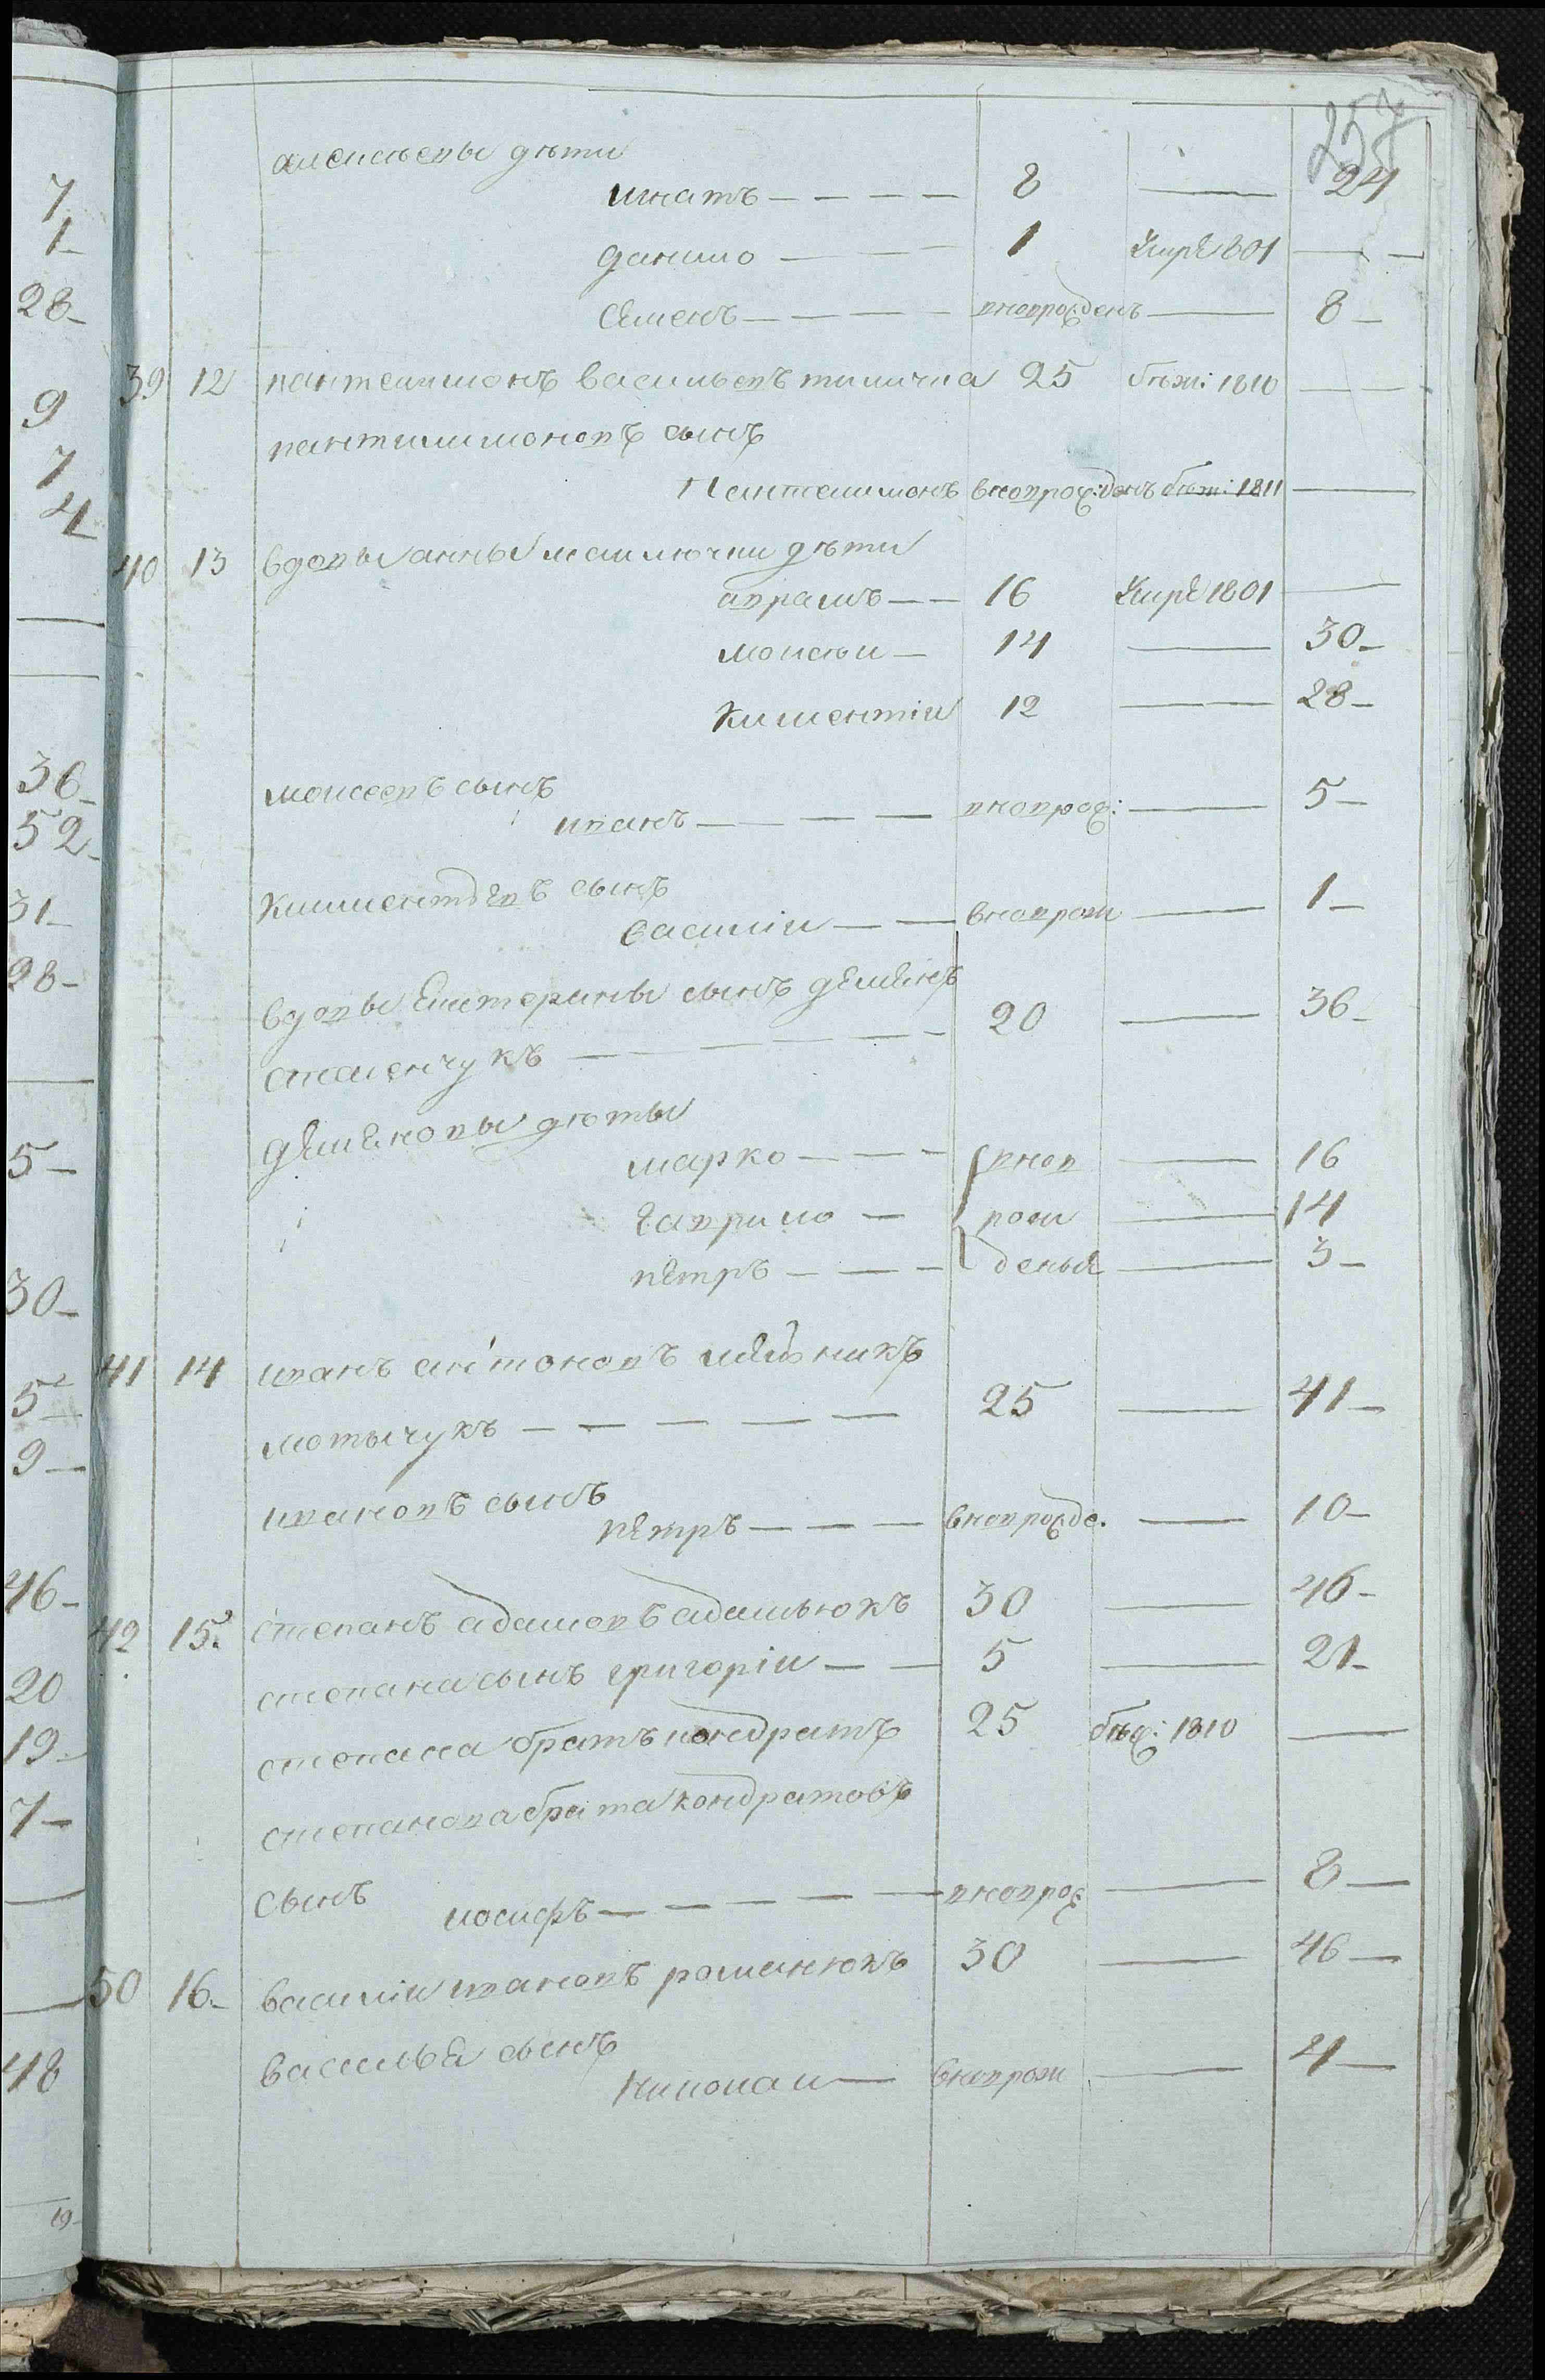 257
алексѣевы дѣти
игнатъ 8 — 24
данило 1 умре 1801 —
семенъ вновро:жденъ — 8
39 12 пантелимонъ васильевъ 25 бѣж: 1810 —
пантилимоновъ сынъ
Пантелимонъ вновро:жденъ бѣж: 1811 —
40 13 вдовы анны дѣти
аврамъ 16 умре 1801 —
моисѣи 14 — 30
климентіи 12 — 28
моисеевъ сынъ
иванъ вноврож: — 5
климентдевъ сынъ
василіи вноврож — 1
вдовы екатерины сынъ демянъ
20 — 36
демяновы дѣты
марко внов — 16
гаврило рож — 14
петръ деныя — 3
41 14 иванъ антоновъ мельникъ
мотычукъ 25 — 41
ивановъ сынъ
петръ вноврожде. — 10
42 15. степанъ адамовъ адамьюкъ 30 — 46
степана сынъ григоріи 5 — 21
степана братъ кондратъ 25 бѣж: 1810 —
степанова брата кондратовъ
сынъ иосифъ вноврож — 8
50 16 василіи ивановъ романюкъ 30 — 46
василья сынъ
николаи вноврож — 4
7
1
28
9
7
4
36
52
31
28
5
30
5
9
46
20
19
7
48
19